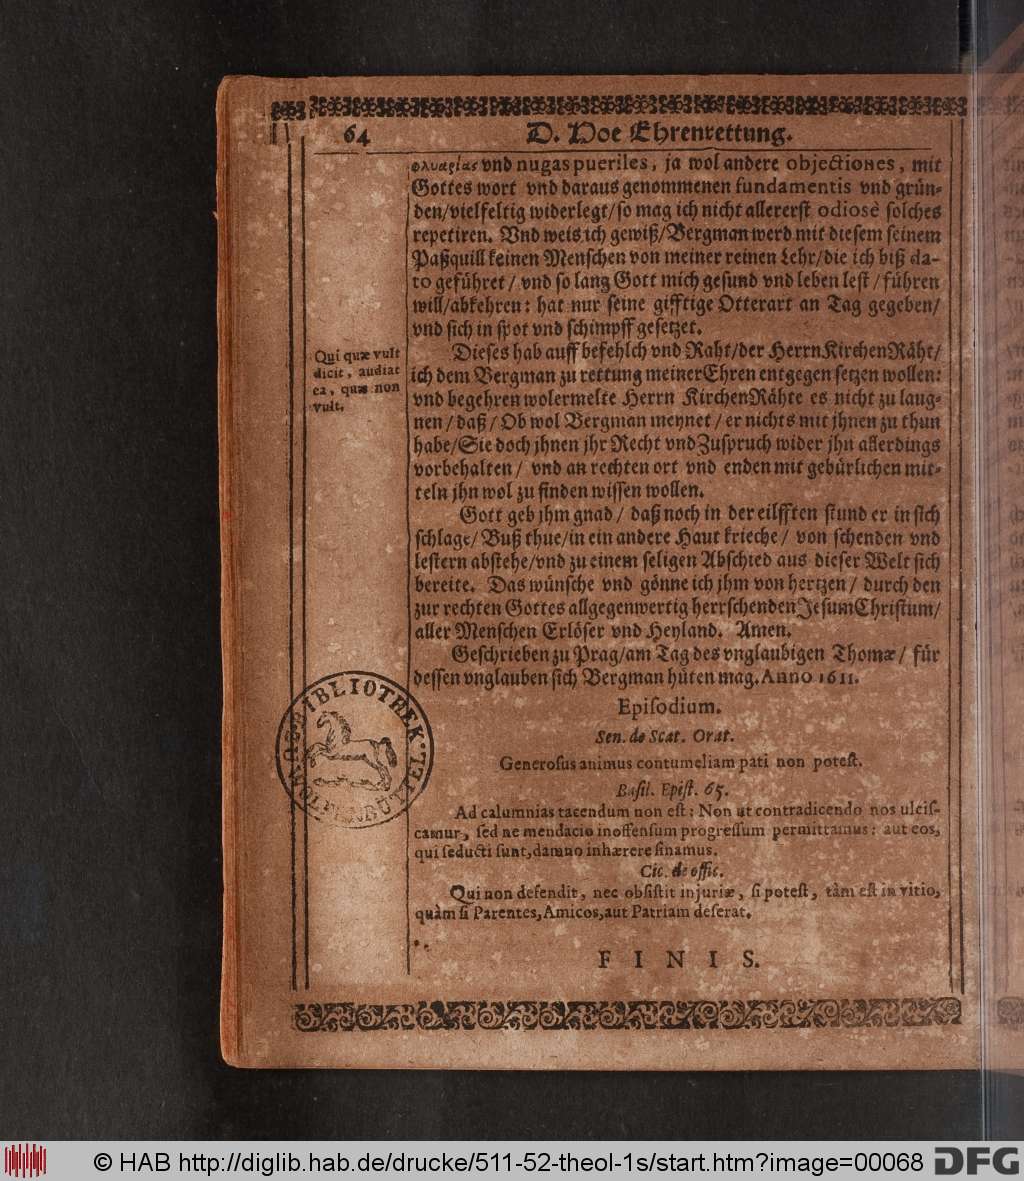 64 D. Hoe Ehrenrettung.
φλυαρίας vnd nugas pueriles, ja wol andere objectiones, mit
Gottes wort vnd daraus genommenen fundamentis vnd grün-
den/vielfeltig widerlegt/so mag ich nicht allererst odiosè solches
repetiren. Vnd weis ich gewiß/Bergman werd mit diesem seinem
Paßquill keinen Menschen von meiner reinen Lehr/die ich biß da-
to geführet/ vnd so lang Gott mich gesund vnd leben lest/führen
will/abkehren: hat nur seine gifftige Otterart an Tag gegeben/
vnd sich in spot vnd schimpff gesetzet.
Qui quæ vult
dicit, audiat
ea, quæ non
vult.
Dieses hab auff befehlch vnd Raht/der Herrn KirchenRäht/
ich dem Bergman zu rettung meiner Ehren entgegen setzen wollen:
vnd begehren wolermelte Herrn KirchenRähte es nicht zu laug-
nen/daß/Ob wol Bergman meynet/er nichts mit jhnen zu thun
habe/Sie doch jhnen jhr Recht vnd Zuspruch wider jhn allerdings
vorbehalten/ vnd an rechten ort vnd enden mit gebürlichen mit-
teln jhn wol zu finden wissen wollen.
Gott geb jhm gnad/ daß noch in der eilfften stund er in sich
schlage/Buß thue/in ein andere Haut krieche/ von schenden vnd
lestern abstehe/vnd zu einem seligen Abschied aus dieser Welt sich
bereite. Das wünsche vnd gönne ich jhm von hertzen/ durch den
zur rechten Gottes allgegenwertig herrschenden Jesum Christum/
aller Menschen Erlöser vnd Heyland. Amen.
Geschrieben zu Prag/am Tag des vnglaubigen Thomæ/ für
dessen vnglauben sich Bergman hüten mag. Anno 1611.
Episodium.
Sen. de Scat. Orat.
Generosus animus contumeliam pati non potest.
Basil. Epist. 65.
Ad calumnias tacendum non est: Non ut contradicendo nos ulcis-
camur, sed ne mendacio inoffensum progressum permittamus: aut eos,
qui seducti sunt, damno inhærere sinamus.
Cic. de offic.
Qui non defendit, nec obsistit injuriæ, si potest, tàm est in vitio,
quàm si Parentes, Amicos, aut Patriam deserat.
FINIS.
BIBLIOTHEK
WOLFENBÜTTEL.
© HAB http://diglib.hab.de/drucke/511-52-theol-1s/start.htm?image=00068 DFG